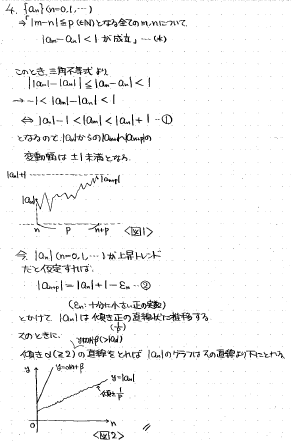 4. {an} (n=0,1,…)
⇒ |m-n| ≦ p (∈N)となる全てのm,nについて、
|am-an| < 1 が成立」…(*)
このとき、三角不等式より、
||am|-|an|| ≦ |am-an| < 1
→ -1 < |am|-|an| < 1
⇔ |an|-1 < |am| < |an|+1 …①
となるので |an|からの|am|の
変動幅は ±1未満となる。
|an|+1
|an+p|
|an|
n p n+p
<図1>
今、|an| (n=0,1,…)が上昇トレンド
だと仮定すれば、
|an+p| = |an|+1-εn …②
(εn:十分に小さい正の実数)
とかけて |an|は傾き正の直線状に推移する。
(1/p)
そのときに、 y=αn+β(>|a0|)
傾きα(≧2)の直線をとれば |an|のグラフはその直線より下にとれる。
y
y=αn+β
y=|an|
傾き 1/p
0
n
<図2>
//